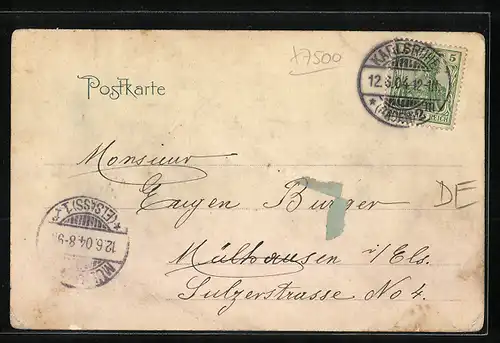 +7500
KARLSRUHE
12.6.04.12-1N.
(BADEN) 2.
5
REICH
Postkarte
Monsieur
Eugen Burger
DE
Mülhausen i/Els.
Sulzerstrasse No 4.
(ELSASS) 1
12.6.04.8-9